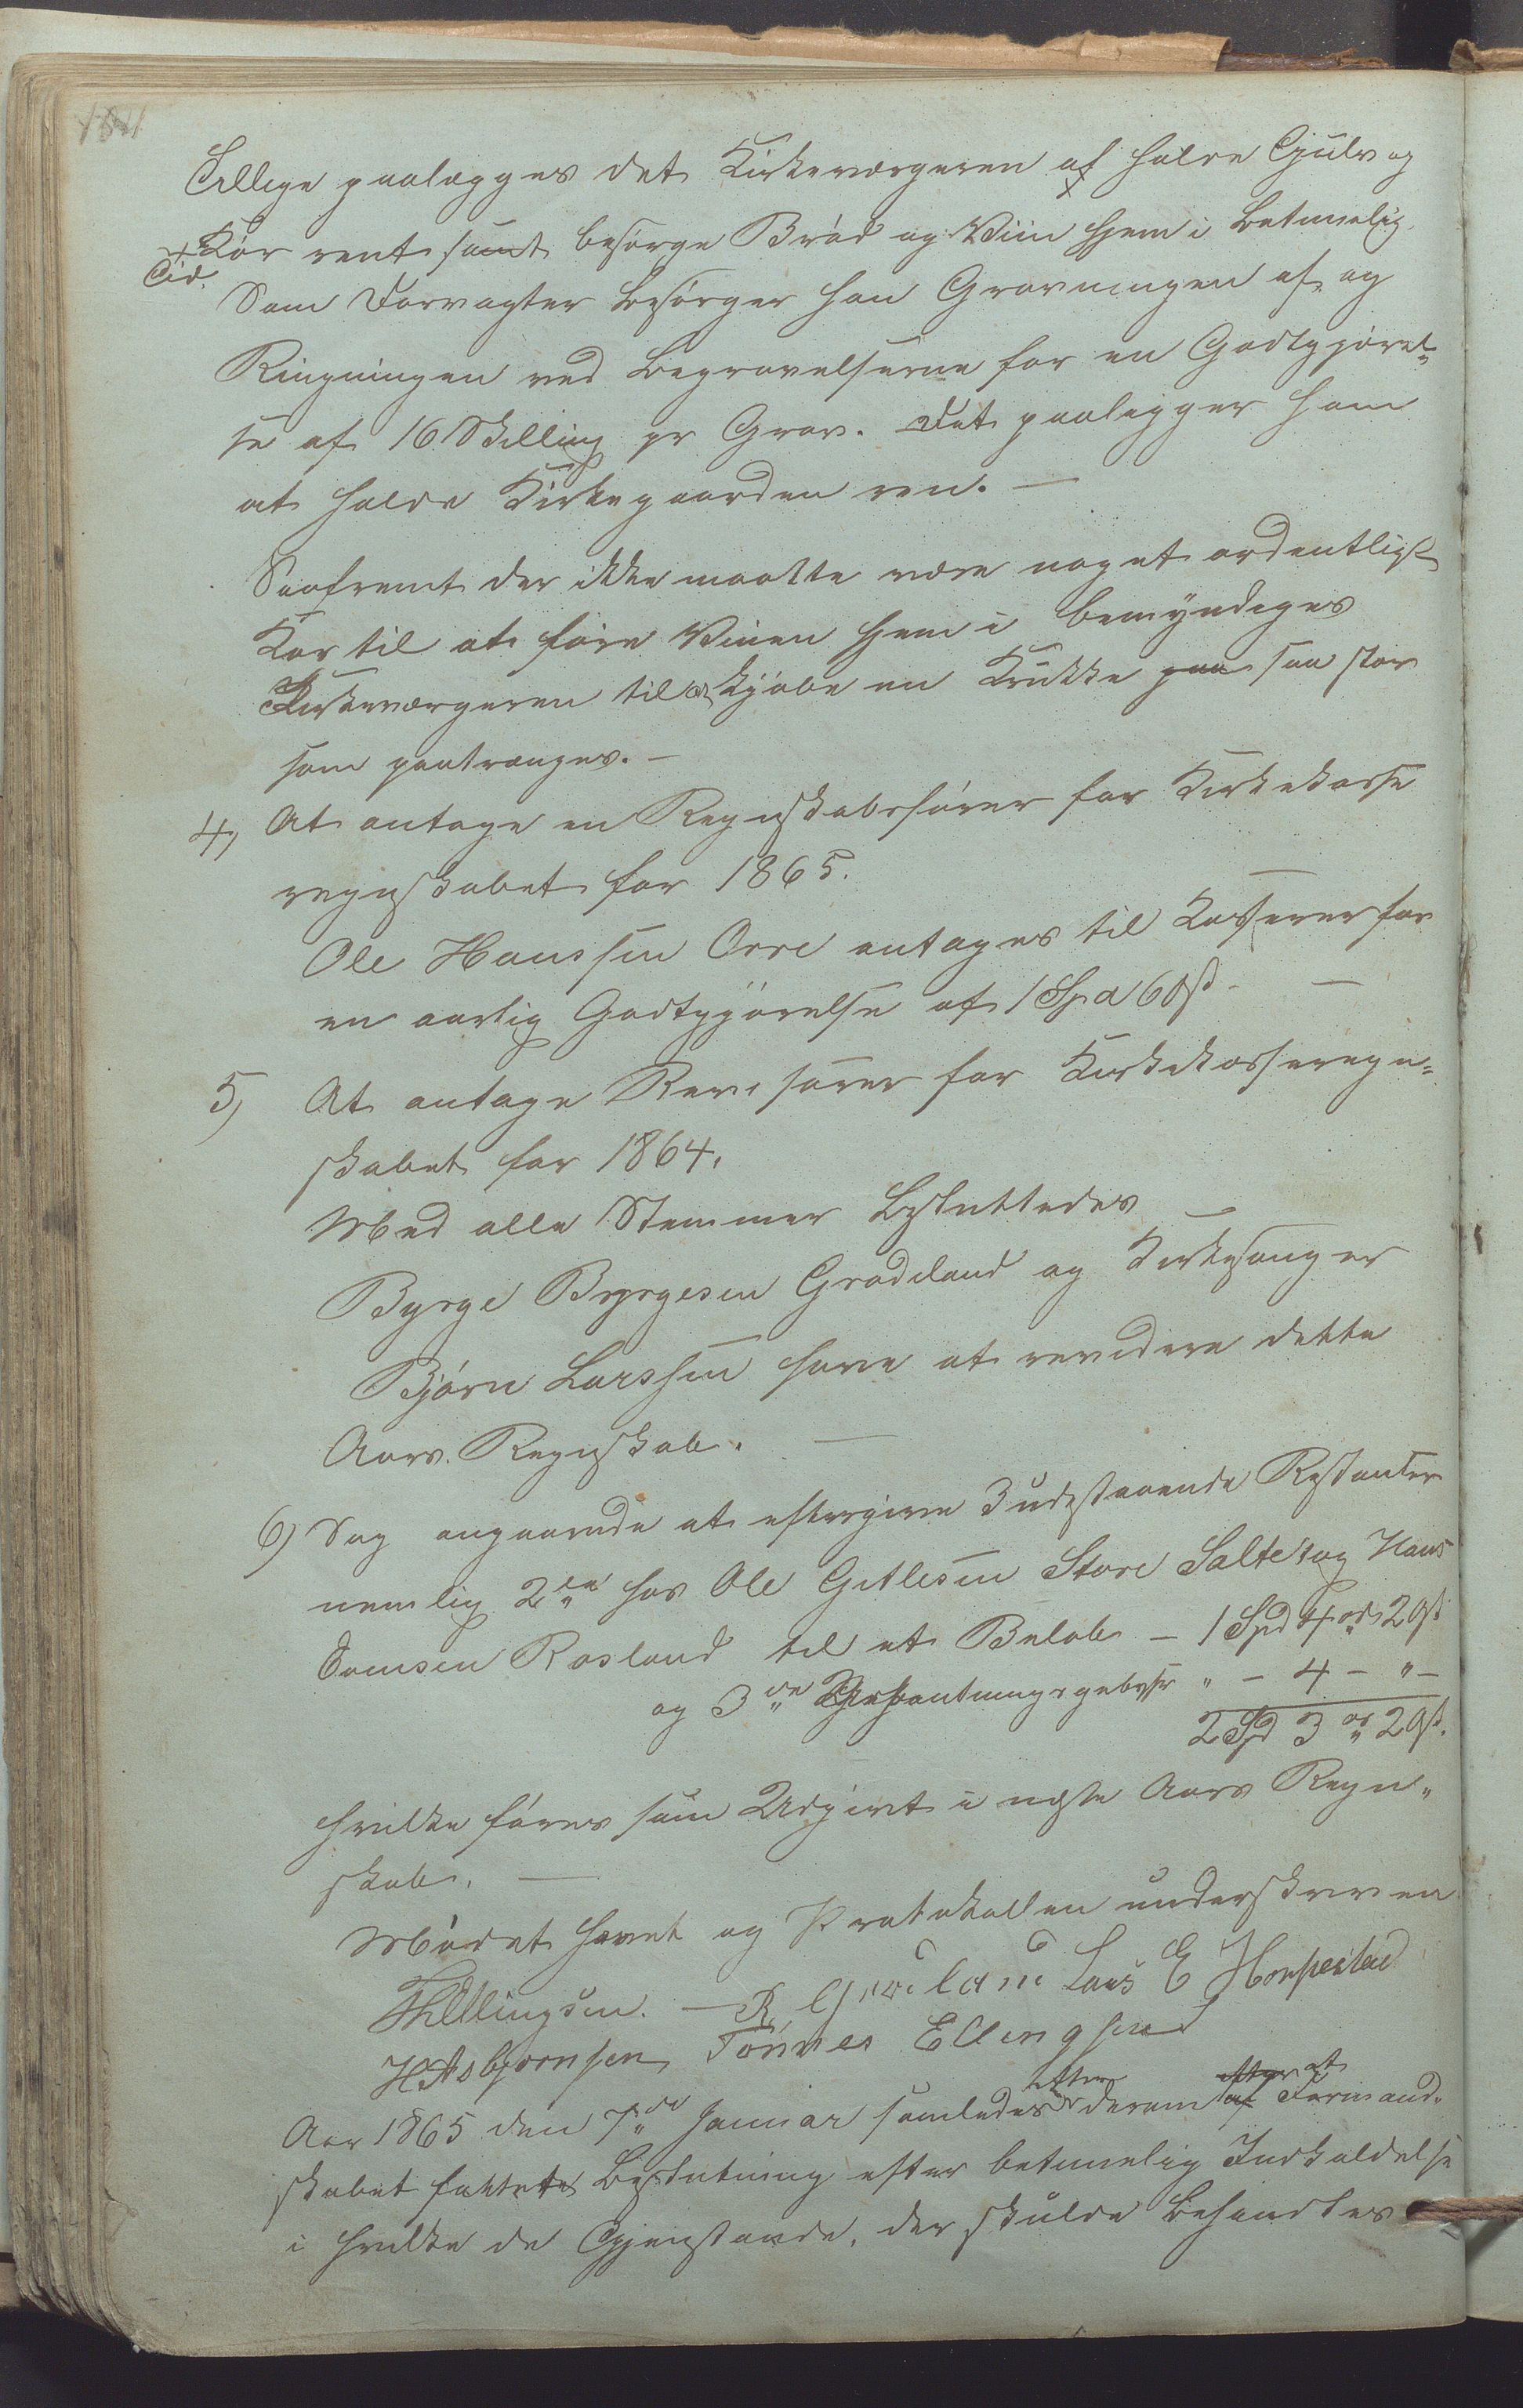 Tillige paalægges det Kirkeværgeren at holde Gjulv og
× Kor rent samt besørge Brød og Viin hjem i betimelig
Tid.
Som Forvagter besørger han Gravningen af og
Ringningen ved Begravelserne for en Godtgjørel-
se af 16 Skilling pr Grav. Det paaligger ham
at holde Kirkegaarden ren. —
Saafremt der ikke maatte være noget ordentligt
Kar til at føre Vinen hjem i bemyndiges
Kirkeværgeren til at kjøbe en Krukke paa saa stor
som paatrænges. —
4, At antage en Regnskabsfører for Kirkekasse
regnskabet for 1865.
Ole Hanssen Orre antages til Kasserer for
en aarlig Godtgjørelse af 1 Spd 60 ß. —
5) At antage Revisorer for Kirkekasseregn-
skabet for 1864.
Med alle Stemmer besluttedes
Byrge Byrgesen Grødeland og Kirkesanger
Bjørn Larssen have at revidere dette
Aars Regnskab. —
6) Sag angaaende at eftergive 3 udestaaende Restantser
nemlig 2de hos Ole Gitlesen Store Salte og Hans
Tomsen Rosland til et Beløb — 1 Spd 4 ort 20 ß
og 3de Udpantningsgebyhr " — 4 — " —
2 Spd 3 or 20 ß.
hvilke føres som Udgivt i neste Aars Regn-
skab. —
Mødet hævet og Protokollen underskreven
Th Ellingsen. — B. Grødeland Lars E Horpestad
H Asbjørnsen Tønnes Ellingsen
Aar 1865 den 7de Januar samledes efter derom af efter at Formand-
skabet fattet Beslutning efter betimelig Indkaldelse
i hvilke de Gjenstande, der skulde behandles